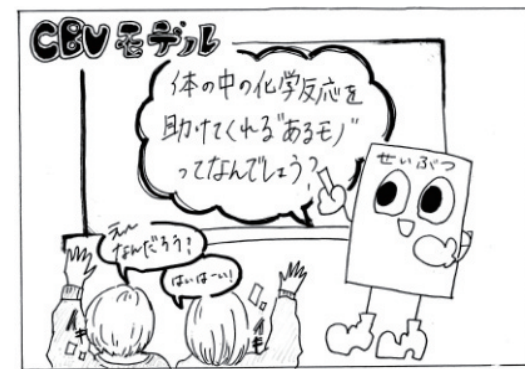 CBVモデル
体の中の化学反応を
助けてくれる"あるモノ"
ってなんでしょう?
せいぶつ
えー
なんだろう?
はいはーい!